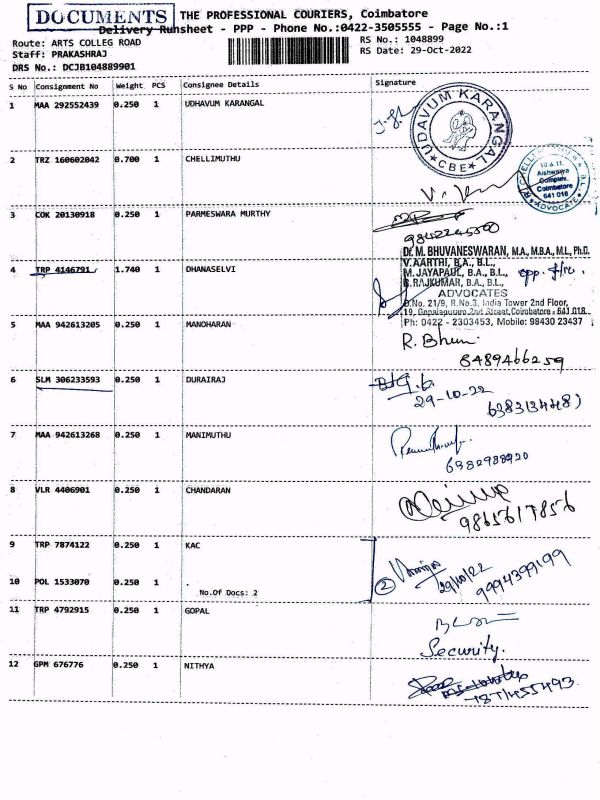 DOCUMENTS THE PROFESSIONAL COURIERS, Coimbatore
Delivery Runsheet - PPP - Phone No.:0422-3505555 - Page No.:1
Route: ARTS COLLEG ROAD RS No.: 1048899
Staff: PRAKASHRAJ RS Date: 29-Oct-2022
DRS No.: DCJB104889901
S No Consignment No Weight PCS Consignee Details Signature
1 MAA 292552439 0.250 1 UDHAVUM KARANGAL
UDAVUM KARANGAL
CBE
2 TRZ 160602042 0.700 1 CHELLIMUTHU
10 & 11,
Aishwarya
Complex
Coimbatore
641 018
ADVOCATE
3 COK 20130918 0.250 1 PARMESWARA MURTHY
Dr. M. BHUVANESWARAN, M.A., M.B.A., M.L., Ph.D.
V. AARTHI, B.A., B.L.,
4 TRP 4146791 1.740 1 DHANASELVI
M. JAYAPAUL, B.A., B.L.,
RAJKUMAR, B.A., B.L.,
ADVOCATES
No. 21/9, R.No.3, India Tower 2nd Floor,
19, Gopalapuram 2nd Street, Coimbatore - 641 018.
Ph: 0422 - 2303453, Mobile: 98430 23437
5 MAA 942613205 0.250 1 MANOHARAN
R. Bhum
8489466259
6 SLM 306233593 0.250 1 DURAIRAJ
29-10-22
7 MAA 942613268 0.250 1 MANIMUTHU
8 VLR 4406901 0.250 1 CHANDARAN
9865617856
9 TRP 7874122 0.250 1 KAC
2 29/10/22 9994399199
10 POL 1533070 0.250 1 .
No.Of Docs: 2
11 TRP 4792915 0.250 1 GOPAL
Security.
12 GPM 676776 0.250 1 NITHYA